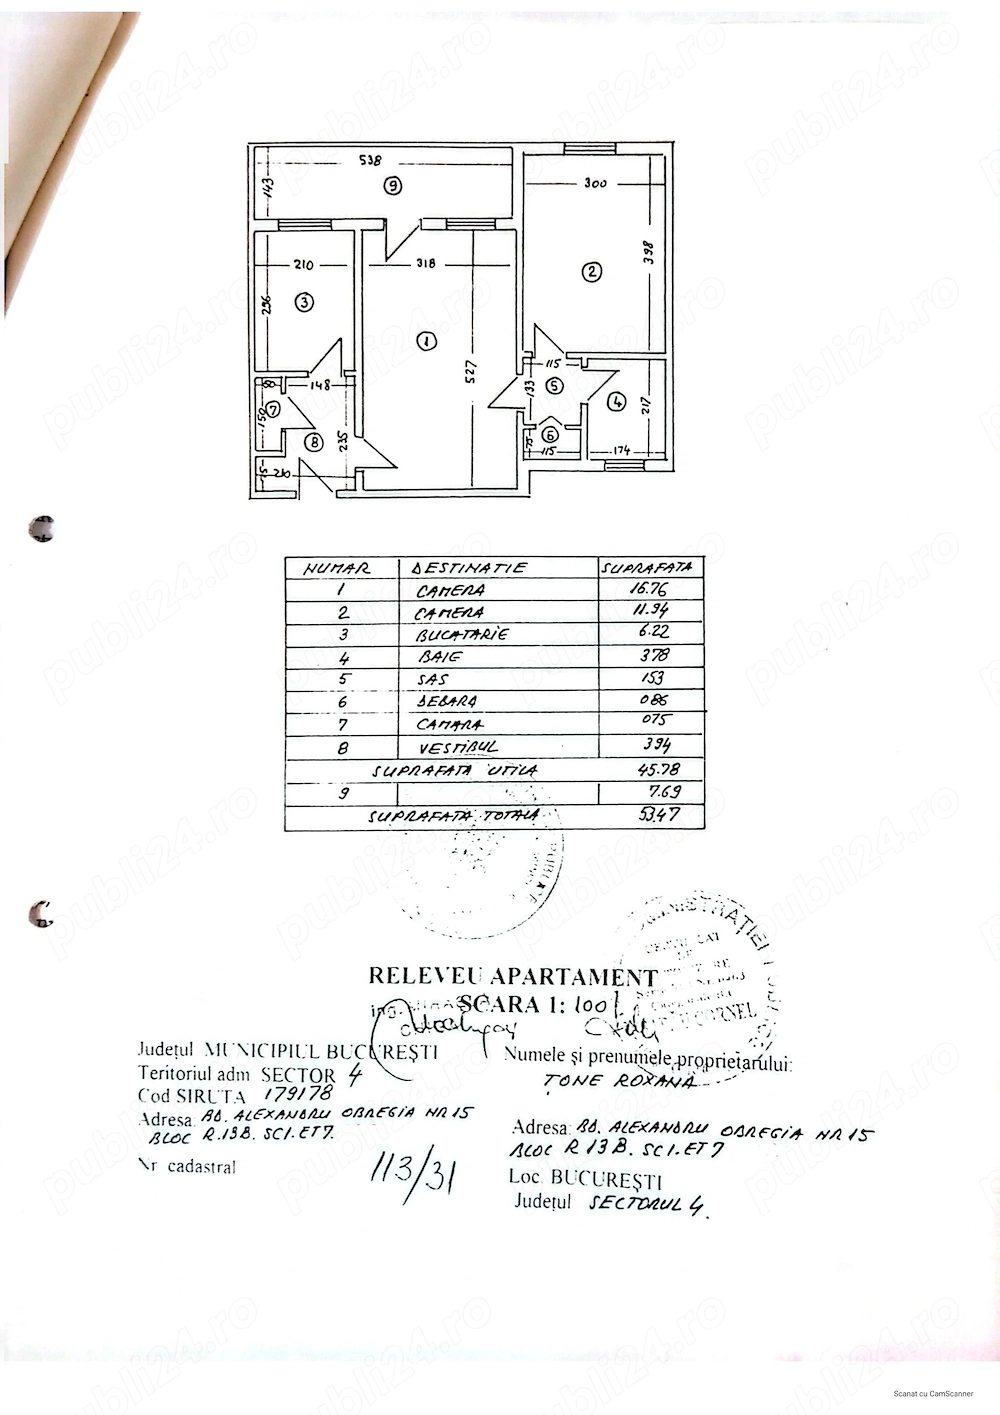 538
143
9
300
398
2
210
296
3
318
1
527
115
133
5
4
217
174
6
75
115
80
148
7
150
8
235
210
NUMAR DESTINATIE SUPRAFATA
1 CAMERA 16.76
2 CAMERA 11.94
3 BUCATARIE 6.22
4 BAIE 378
5 SAS 153
6 DEBARA 086
7 CAMARA 075
8 VESTIBUL 394
SUPRAFATA UTILA 45.78
9 7.69
SUPRAFATA TOTALA 53.47
RELEVEU APARTAMENT
SCARA 1: 100
Județul MUNICIPIUL BUCUREȘTI
Teritoriul adm SECTOR 4
Cod SIRUTA 179178
Adresa BD. ALEXANDRU OBREGIA NR 15
BLOC R.13B. SC1. ET7.
Nr cadastral 113/31
Numele și prenumele proprietarului:
ȚONE ROXANA
Adresa: BD. ALEXANDRU OBREGIA NR 15
BLOC R 13B. SC1. ET7
Loc. BUCUREȘTI
Județul SECTORUL 4.
ADMINISTRAȚIEI
CORNEL
publi24.ro
Scanat cu CamScanner